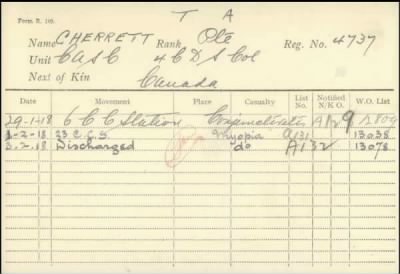 T A
Form B. 103.
Name CHERRETT Rank Pte Reg. No. 4737
Unit CASC 4 C D S Col
Next of Kin Canada
Date Movement Place Casualty List No. Notified N/K O. W.O. List
29-1-18 6 C C Station Conjunctivitis A129 12809
1-2-18 23 C.C.S. Myopia A131 13035
3.2.18 Discharged do A132 13078